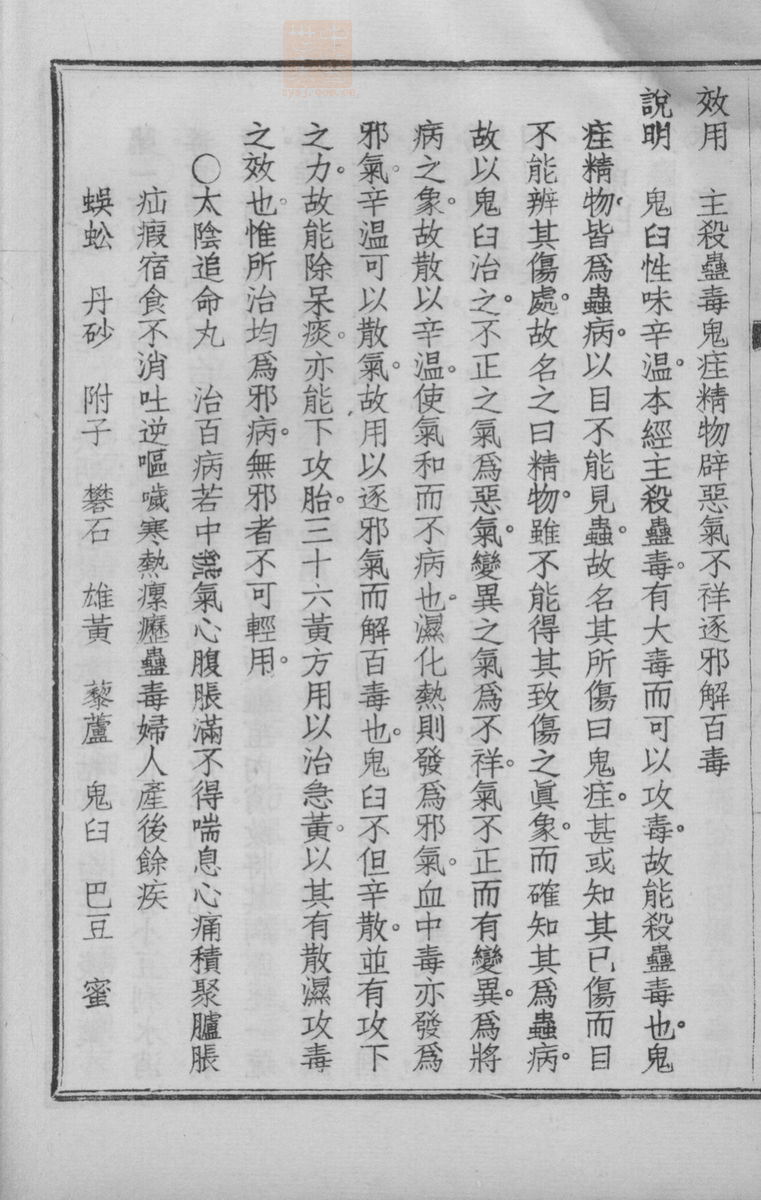 效用　主殺蠱毒鬼疰精物辟惡氣不祥逐邪解百毒
說明　鬼臼性味辛溫。本經主殺蠱毒。有大毒而可以攻毒。故能殺蠱毒也。鬼
疰精物皆爲蟲病。以目不能見蟲。故名其所傷曰鬼疰。甚或知其已傷而目
不能辨其傷處。故名之曰精物。雖不能得其致傷之眞象。而確知其爲蟲病。
故以鬼臼治之。不正之氣爲惡氣。變異之氣爲不祥。氣不正而有變異。爲將
病之象。故散以辛溫。使氣和而不病也。濕化熱則發爲邪氣。血中毒亦發爲
邪氣。辛溫可以散氣。故用以逐邪氣而解百毒也。鬼臼不但辛散。並有攻下
之力。故能除呆痰。亦能下攻胎。三十六黃方用以治急黃。以其有散濕攻毒
之效也。惟所治均爲邪病。無邪者不可輕用。
〇太陰追命丸　治百病若中氣心腹脹滿不得喘息心痛積聚臚脹
疝瘕宿食不消吐逆嘔噦寒熱瘰癧蠱毒婦人產後餘疾
蜈蚣　丹砂　附子　礬石　雄黃　藜蘆　鬼臼　巴豆　蜜